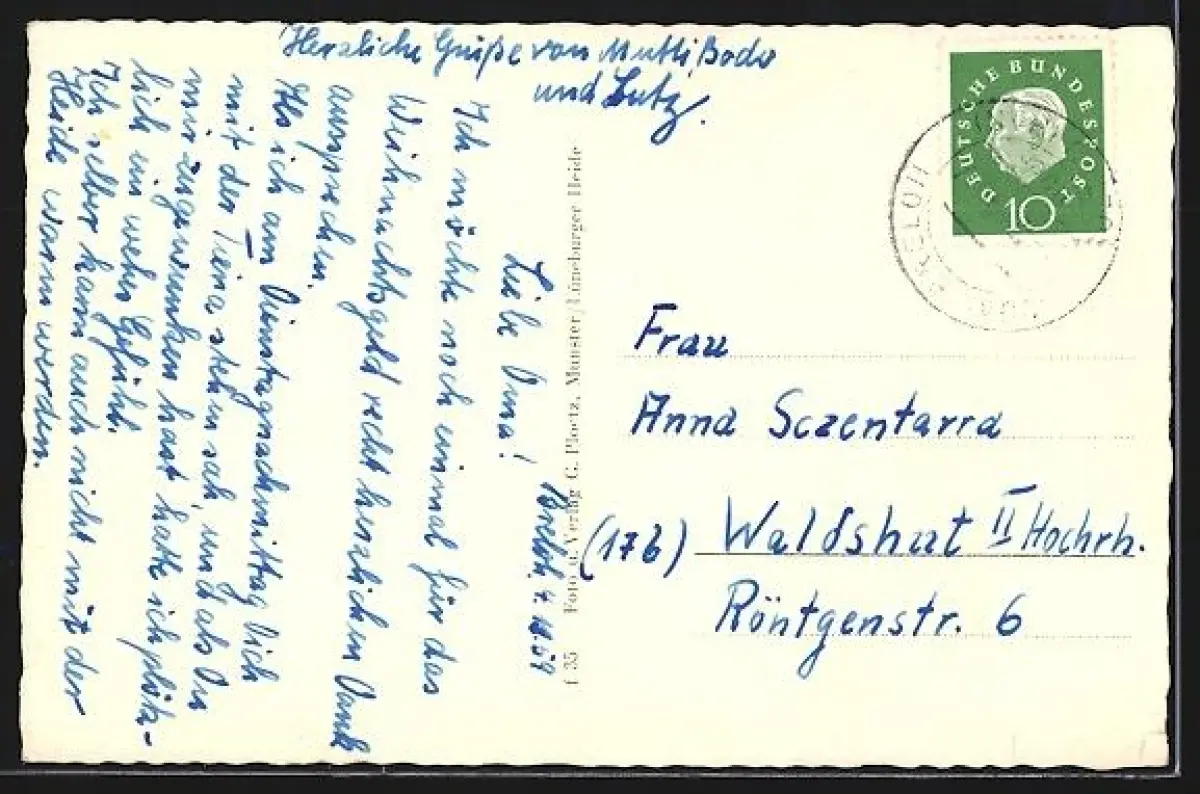 Breloh, 4.
Liebe Oma!
Ich möchte noch einmal für das
Weihnachtsgeld recht herzlichen Dank
aussprechen.
Als ich am Dienstagnachmittag Dich
mit der Tiena stehen sah, und als Du
mir zugewunken hast, hatte ich plötz-
lich ein wehes Gefühl.
Ich selber kann auch nicht mit der
Heide warm werden.
Herzliche Grüße von Mutti, Bodo
und Lutz.
f 35 Foto u. Verlag G. Ploetz, Munster/Lüneburger Heide
DEUTSCHE BUNDESPOST
10
Frau
Anna Sczentarra
(17b) Waldshut II Hochrh.
Röntgenstr. 6